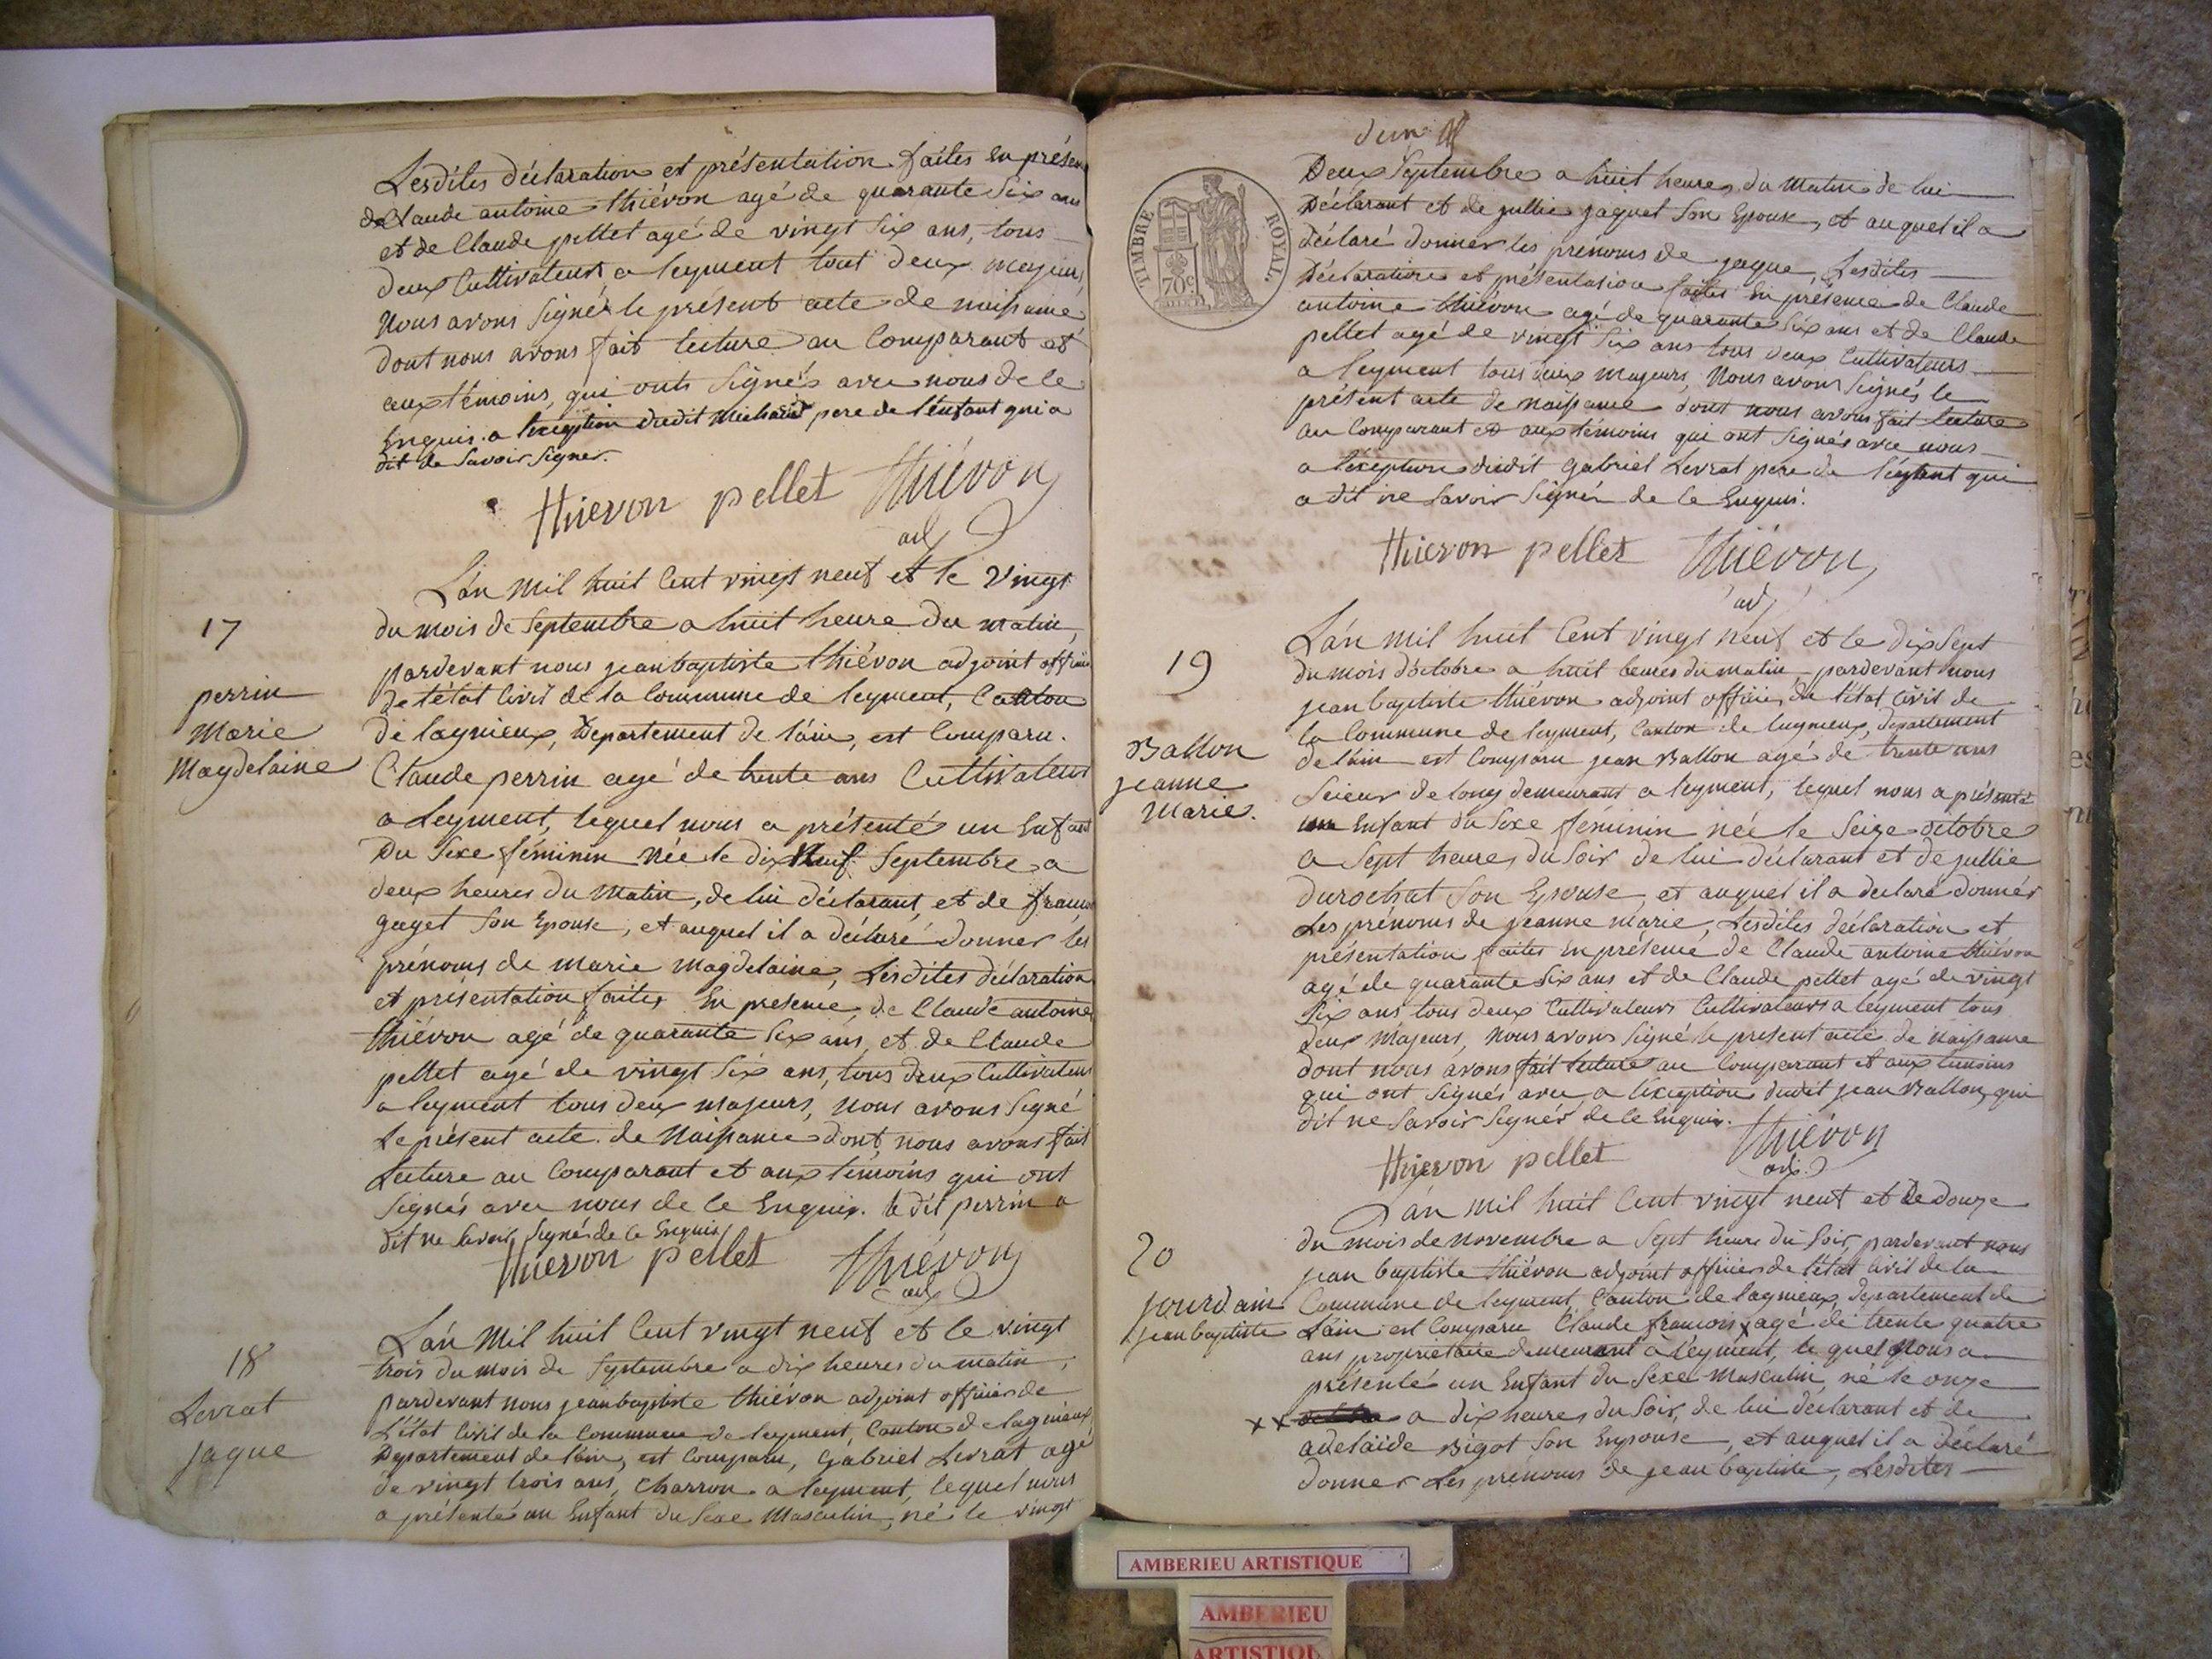 Lesdites déclaration et présentation faites en présen
de Claude antoine thiévon agé de quarante Six ans
et de Claude pellet agé de vingt Six ans, tous
deux Cultivateurs a leyment tout deux majeurs,
Nous avons Signé le présent acte de naissance
dont nous avons fait lecture au Comparant et
aux témoins, qui ont Signés avec nous de ce
Enquis. a l'exception dudit Michaud pere de l'enfant qui a
dit de Savoir Signer.
thievon pellet thiévon
adj
17
perrin
Marie
Magdelaine
L'an mil huit Cent vingt neuf et le vingt
du mois de Septembre a huit heure du matin,
pardevant nous jean baptiste thiévon adjoint officie
de l'état Civil de la Commune de leyment, Canton
de lagnieux, Departement de l'ain, est Comparu.
Claude perrin agé de trente ans Cultivateur
a Leyment, lequel nous a présenté un Enfant
Du Sexe féminin Née le dix Neuf Septembre a
deux heures du Matin, de lui déclarant, et de
gaget Son Epouse, et auquel il a déclaré donner les
prénoms de Marie Magdelaine, Lesdites déclaration
et présentation faites En presence, de Claude antoine
thiévon agé de quarante Six ans, et de Claude
pellet agé de vingt Six ans, tous deux Cultivateurs
a leyment tous deux majeurs, nous avons Signé
Le présent acte de Naissance dont nous avons fait
Lecture au Comparant et aux témoins qui ont
Signés avec nous de ce Enquis. le dit perrin a
dit ne Savoir Signer de ce Enquis
thievon pellet thiévon
adj
18
Levrat
jaque
L'an Mil huit Cent vingt neuf et le vingt
trois du mois de Septembre a dix heures du matin,
pardevant nous jean baptiste thiévon adjoint officier de
L'état Civil de la Commune de leyment, Canton de lagnieux
Departement de l'ain, est Comparu, Gabriel Levrat agé
de vingt trois ans, Charron a leyment, lequel nous
a présenté un Enfant du Sexe Masculin, né le vingt
TIMBRE ROYAL
70c
Deux Septembre a huit heures du Matin de lui
Déclarant et de jullie jaquet Son Epouse, et auquel il a
déclaré donner les prénoms de jaque, Lesdites
Déclaration et présentation faites En présence de Claude
antoine thiévon agé de quarante Six ans et de Claude
pellet agé de vingt Six ans tous deux Cultivateurs
a leyment tous deux majeurs, Nous avons Signés le
présent acte de Naissance dont nous avons fait lecture
au Comparant et aux témoins qui ont Signés avec nous
a l'exception dudit Gabriel Levrat pere de l'enfant qui
a dit ne Savoir Signer de ce Enquis.
thievon pellet thiévon
adj
19
Ballon
jeanne
Marie.
L'an mil huit Cent vingt neuf et le dix Sept
du mois d'octobre a huit heures du matin, pardevant nous
jean baptiste thiévon adjoint officier de l'état Civil de
la Commune de leyment, Canton de lagnieux, departement
de l'ain est Comparu jean Ballon agé de trente ans
Scieur de long demeurant a leyment, lequel nous a présenté
un Enfant du Sexe feminin née le Seize octobre
a Sept heures du Soir de lui déclarant et de jullie
durochat Son Epouse, et auquel il a declaré donner
Les prénoms de jeanne marie, Lesdites déclaration et
présentation faites En présence de Claude antoine thiévon
agé de quarante Six ans et de Claude pellet agé de vingt
Six ans tous deux Cultivateurs Cultivateurs a leyment tous
deux Majeurs, nous avons Signé le present acte de Naissance
dont nous avons fait lecture au Comparant et aux temoins
qui ont Signés avec a l'exception dudit jean Ballon, qui
dit ne Savoir Signer de ce Enquis.
thievon pellet thiévon
adj
20
jourdain
jean baptiste
L'an mil huit Cent vingt neuf et le douze
du mois de Novembre a Sept heure du Soir, pardevant nous
jean baptiste thiévon adjoint officier de l'état Civil de la
Commune de leyment Canton de lagnieux, departement de
L'ain est Comparu Claude francois x agé de trente quatre
ans proprietaire demeurant a leyment, lequel Nous a
présenté un Enfant du Sexe Masculin, né le onze
xx a dix heures du Soir, de lui declarant et de
adelaïde Bigot Son Enpouse, et auquel il a déclaré
donner Les prénoms de jean baptiste, Lesdites
AMBERIEU ARTISTIQUE
AMBERIEU
ARTISTIQU